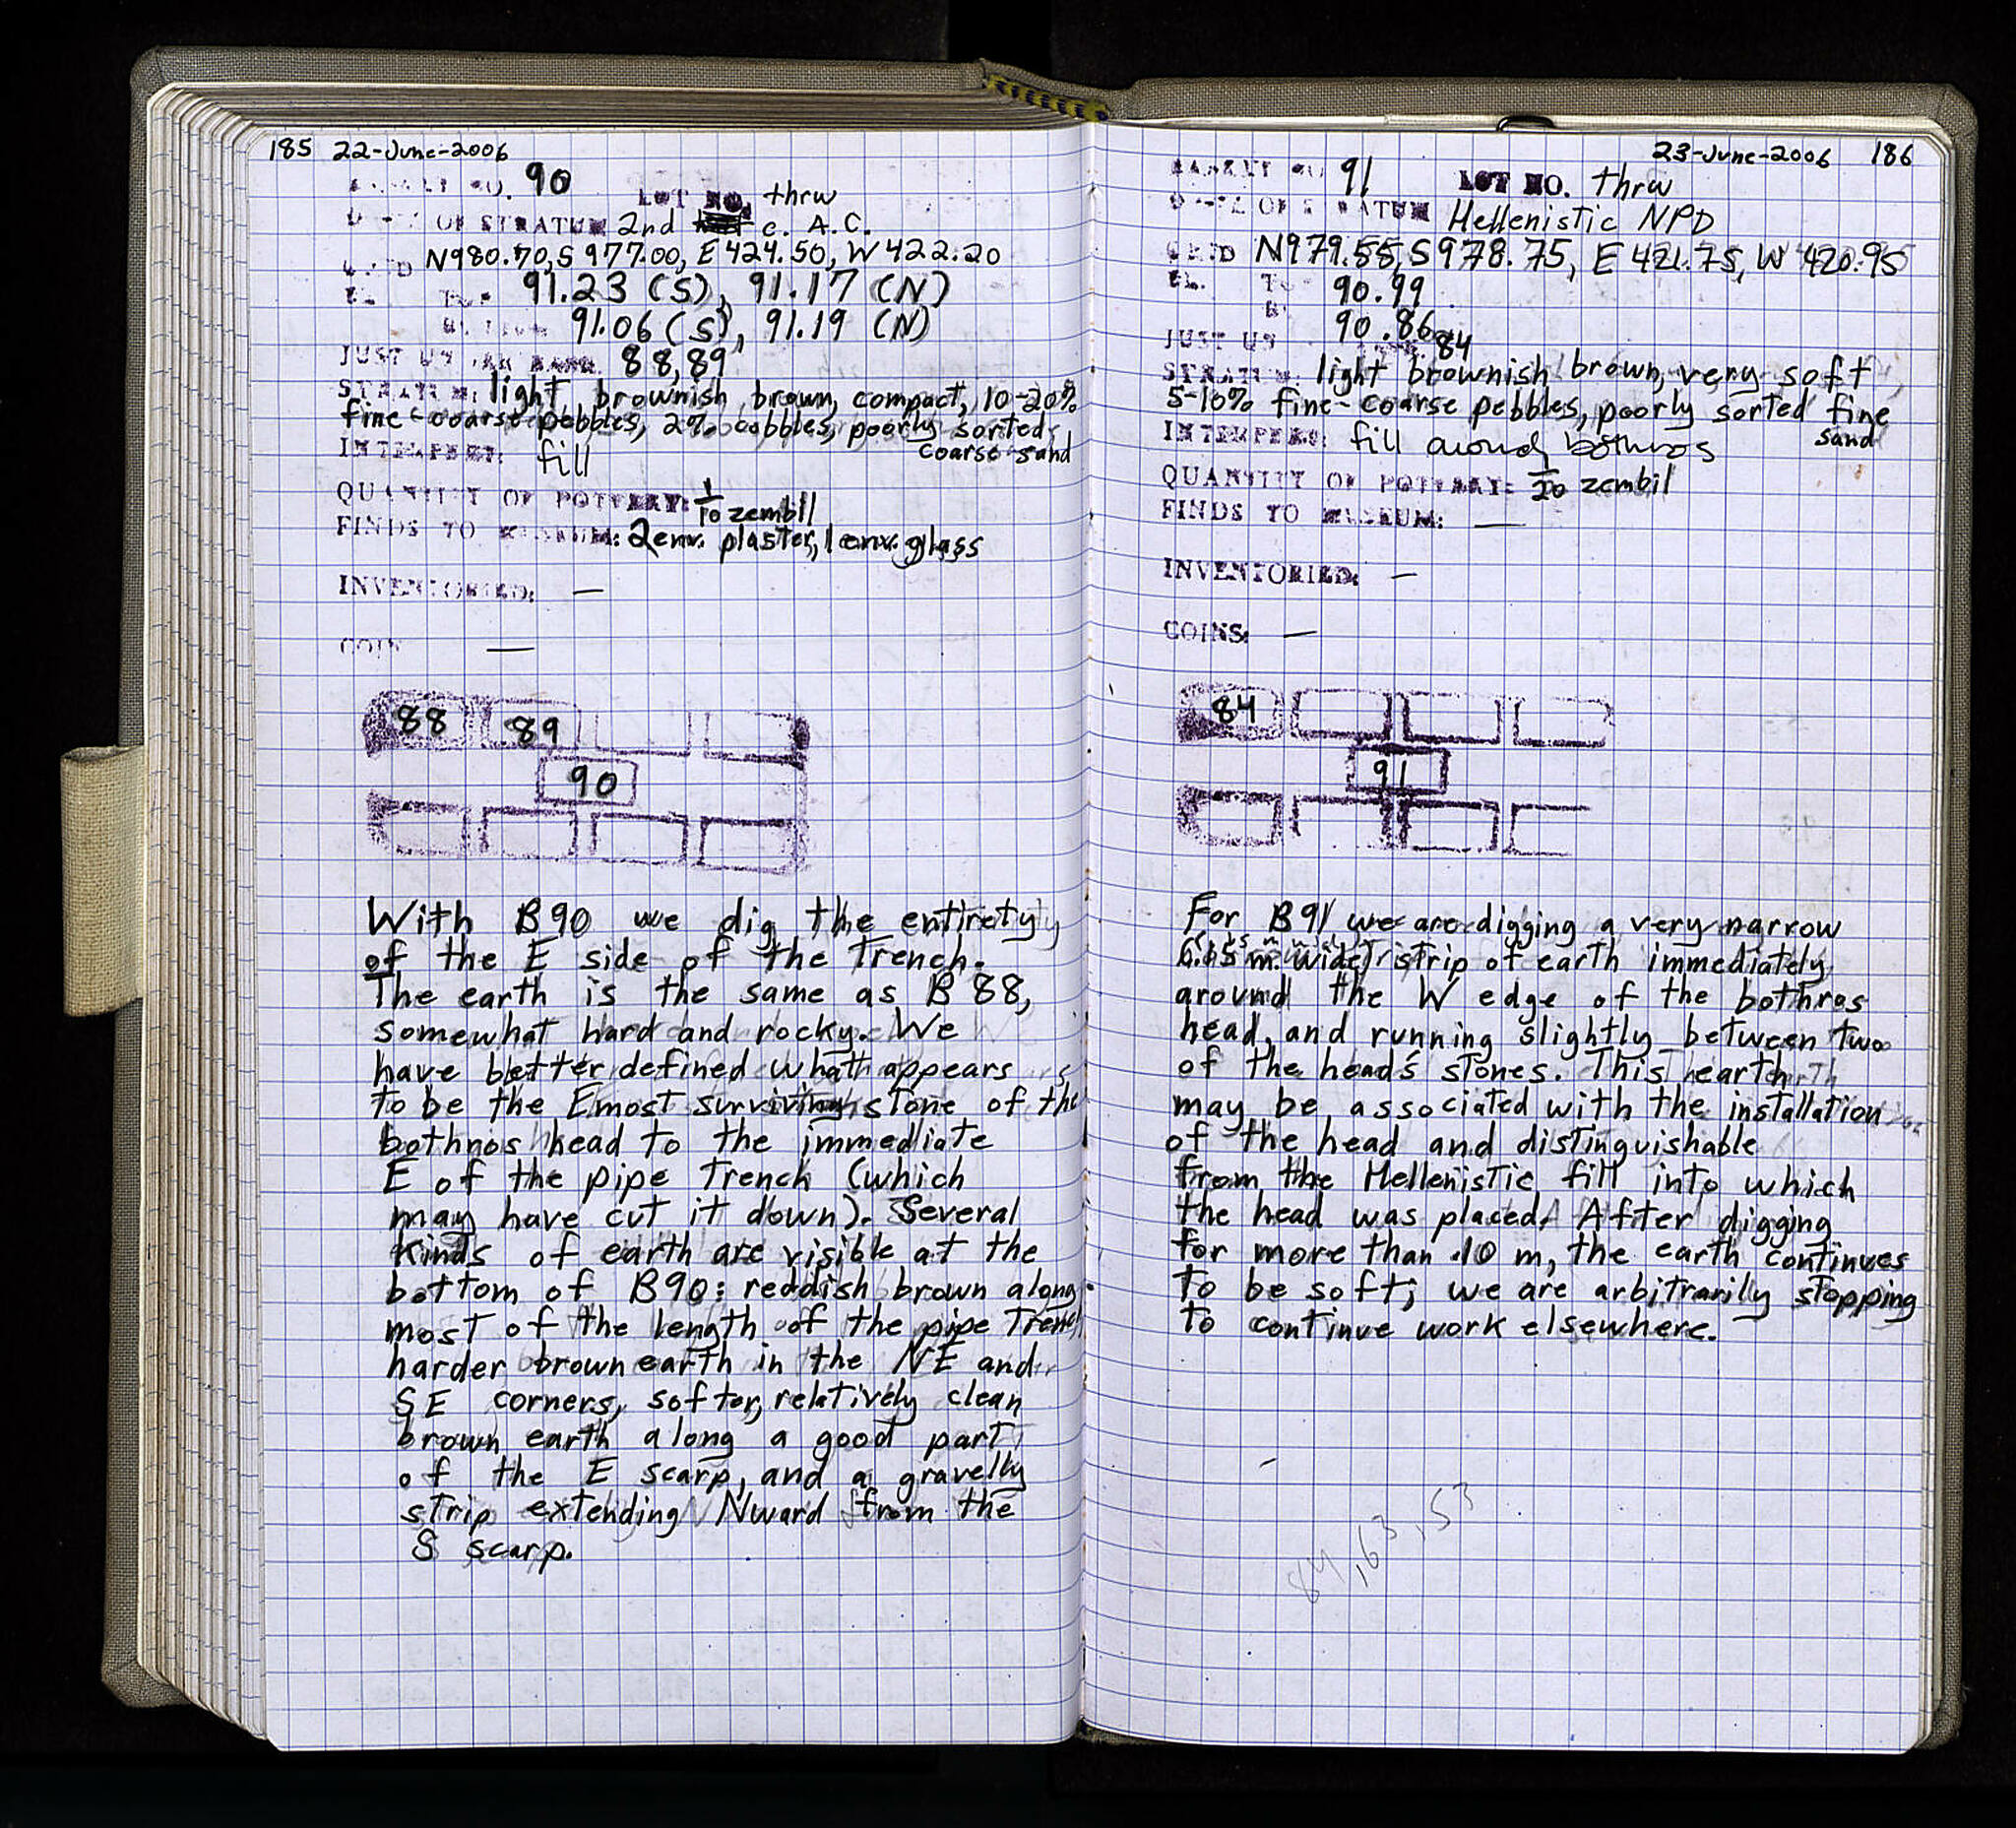 185 22-June-2006
BASKET NO. 90
LOT NO. thrw
DATE OF STRATUM 2nd c. A.C.
GRID N980.70, S977.00, E424.50, W422.20
EL. TOP 91.23 (S), 91.17 (N)
BOTTOM 91.06 (S), 91.19 (N)
JUST UNDER BASK. 88, 89
STRATUM: light, brownish brown, compact, 10-20%
fine-coarse pebbles, 2% cobbles, poorly sorted
coarse sand
INTERPRET: fill
QUANTITY OF POTTERY: 1/10 zembil
FINDS TO MUSEUM: 2 env. plaster, 1 env. glass
INVENTORIED: —
COINS —
88 89
90
With B90 we dig the entirety
of the E side of the Trench.
The earth is the same as B 88,
somewhat hard and rocky. We
have better defined what appears
to be the Emost surviving stone of the
bothros head to the immediate
E of the pipe Trench (which
may have cut it down). Several
kinds of earth are visible at the
bottom of B90: reddish brown along
most of the length of the pipe Trench
harder brown earth in the NE and
SE corners, softer, relatively clean
brown earth along a good part
of the E scarp, and a gravelly
strip extending Nward from the
S scarp.
23-June-2006 186
BASKET NO 91 LOT NO. thrw
DATE OF STRATUM Hellenistic NPD
GRID N979.55, S978.75, E 421.75, W 420.95
EL. TOP 90.99
B 90.86
JUST UNDER 84
STRATUM: light brownish brown, very soft
5-10% fine-coarse pebbles, poorly sorted fine
sand
INTERPRET: fill around bothros
QUANTITY OF POTTERY: 1/20 zembil
FINDS TO MUSEUM: —
INVENTORIED: —
COINS: —
84
91
For B91 we are digging a very narrow
m. wide) strip of earth immediately
around the W edge of the bothros
head, and running slightly between two
of the head's stones. This earth
may be associated with the installation
of the head and distinguishable
from the Hellenistic fill into which
the head was placed. After digging
for more than .10 m, the earth continues
to be soft; we are arbitrarily stopping
to continue work elsewhere.
84, 63, 53